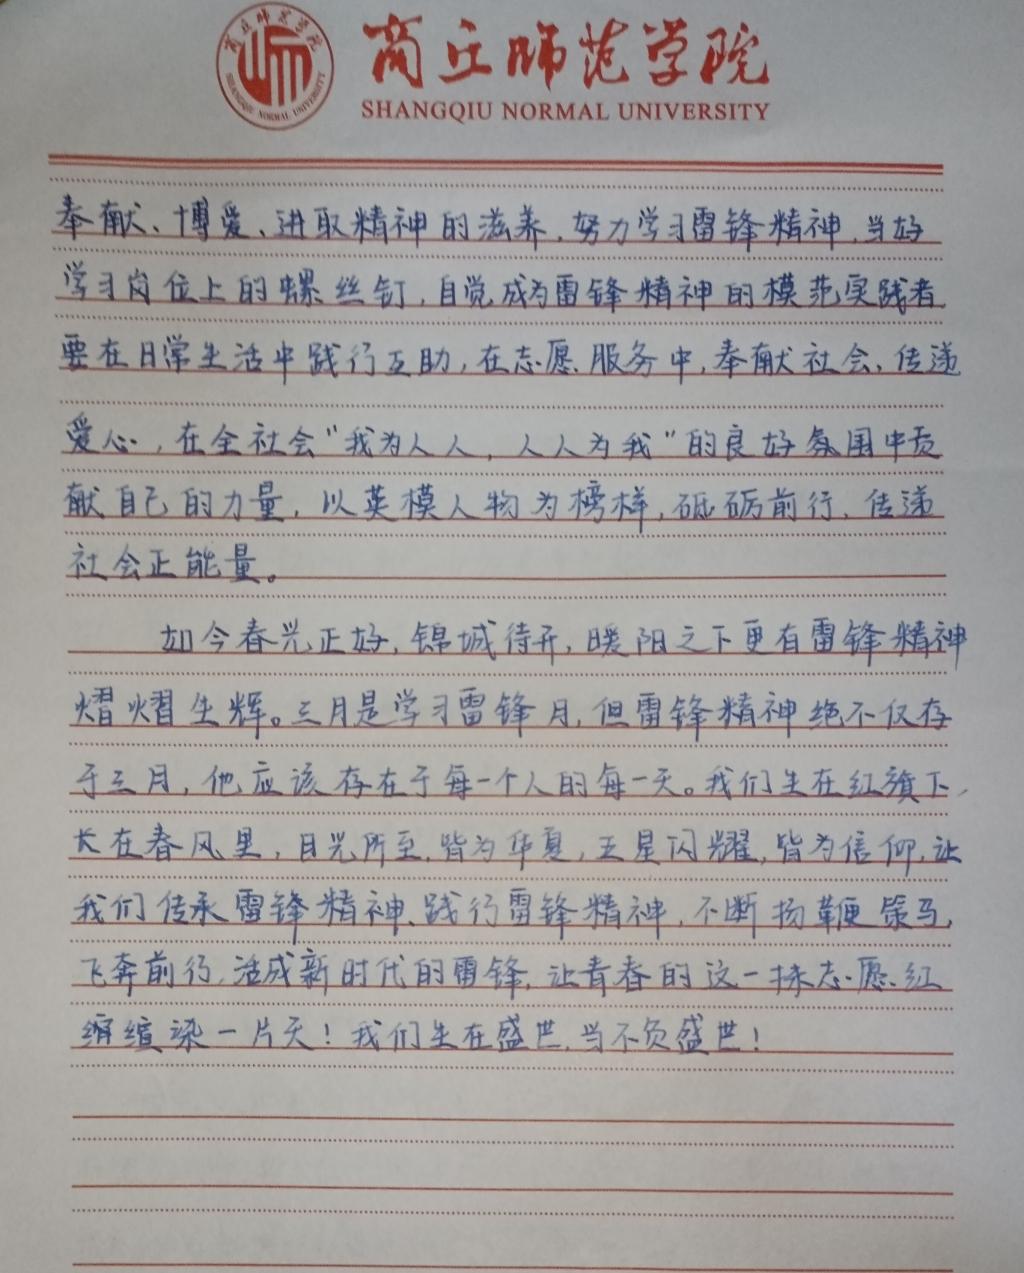 商丘师范学院
SHANGQIU NORMAL UNIVERSITY
商丘师范学院
SHANGQIU NORMAL UNIVERSITY
奉献、博爱、进取精神的滋养,努力学习雷锋精神,当好
学习岗位上的螺丝钉,自觉成为雷锋精神的模范实践者
要在日常生活中践行互助,在志愿服务中,奉献社会、传递
爱心,在全社会“我为人人,人人为我”的良好氛围中贡
献自己的力量,以英模人物为榜样,砥砺前行,传递
社会正能量。
如今春光正好,锦城待开,暖阳之下更有雷锋精神
熠熠生辉。三月是学习雷锋月,但雷锋精神绝不仅存
于三月,他应该存在于每一个人的每一天。我们生在红旗下,
长在春风里,目光所至,皆为华夏,五星闪耀,皆为信仰,让
我们传承雷锋精神、践行雷锋精神,不断扬鞭策马,
飞奔前行,活成新时代的雷锋,让青春的这一抹志愿红
缩缩染一片天!我们生在盛世,当不负盛世!